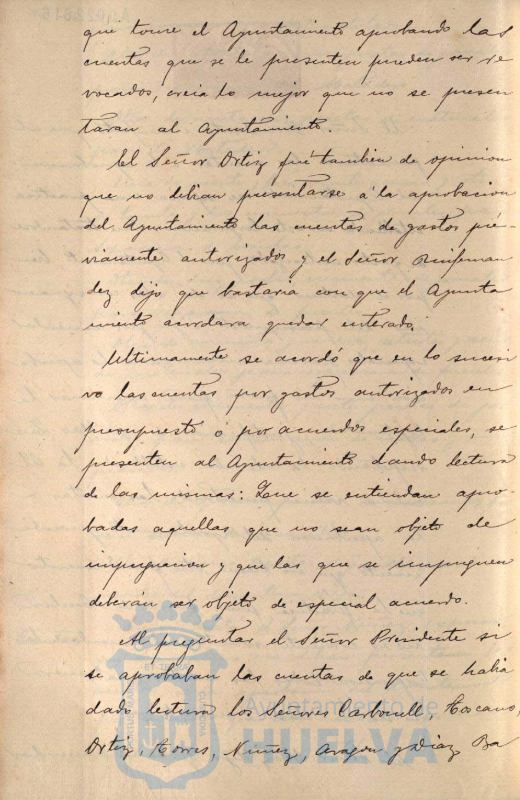 que tome el Ayuntamiento aprobando las
cuentas que se le presenten pueden ser re
vocados, creia lo mejor que no se presen
taran al Ayuntamiento.
El Señor Ortiz fué tambien de opinion
que no debian presentarse á la aprobacion
del Ayuntamiento las cuentas de gastos pré-
viamente autorizados y el Señor
dez dijo que bastaria con que el Ayunta
miento acordara quedar enterado.
Ultimamente se acordó que en lo sucesi
vo las cuentas por gastos autorizados en
presupuesto ó por acuerdos especiales, se
presenten al Ayuntamiento dando lectura
de las mismas: Que se entiendan apro-
badas aquellas que no sean objeto de
impugnacion y que las que se impugnen
deberán ser objeto de especial acuerdo.
Al preguntar el Señor Presidente si
se aprobaban las cuentas de que se habia
dado lectura los Señores Carbonell, Toscano,
Ortiz, Torres, Nuñez, Aragon y Diaz Ba
Ayuntamiento de
HUELVA